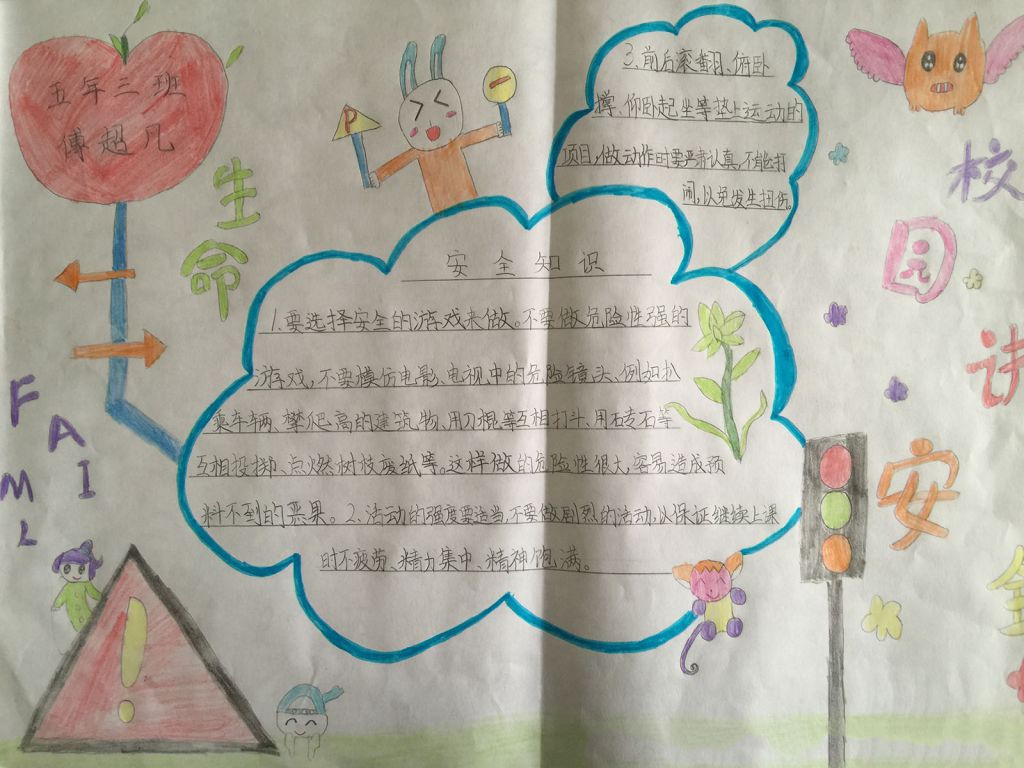 五年三班
傅超凡
生命
FAMILY
P
3.前后滚翻、俯卧
撑、仰卧起坐等垫上运动的
项目,做动作时要严肃认真,不能打
闹,以免发生扭伤。
安全知识
1.要选择安全的游戏来做。不要做危险性强的
游戏,不要模仿电影、电视中的危险镜头、例如扒
乘车辆、攀爬高的建筑物、用刀棍等互相打斗、用砖石等
互相投掷、点燃树枝废纸等。这样做的危险性很大,容易造成预
料不到的恶果。2、活动的强度要适当,不要做剧烈的活动,以保证继续上课
时不疲劳、精力集中、精神饱满。
校园讲安全